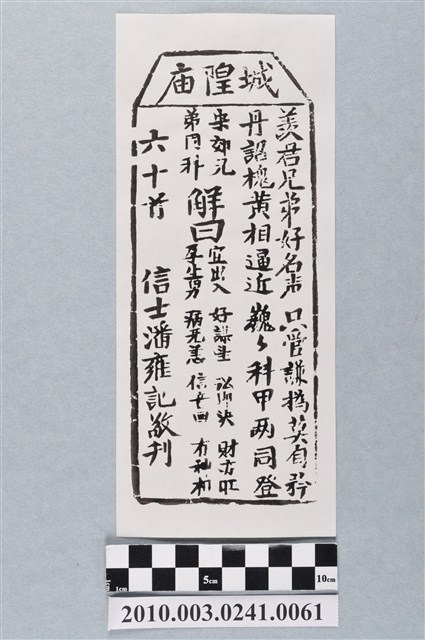 城隍庙
羡君兄弟好名声只管謙撝莫自矜
丹詔槐黄相逼近巍々科甲两同登
宋郊兄
弟同科
解曰
宜出入 好謀望 訟即决 财方旺
孕生男 病无恙 信女回 有神相
六十首 信士潘雍記敬刊
1cm 5cm 10cm
2010.003.0241.0061